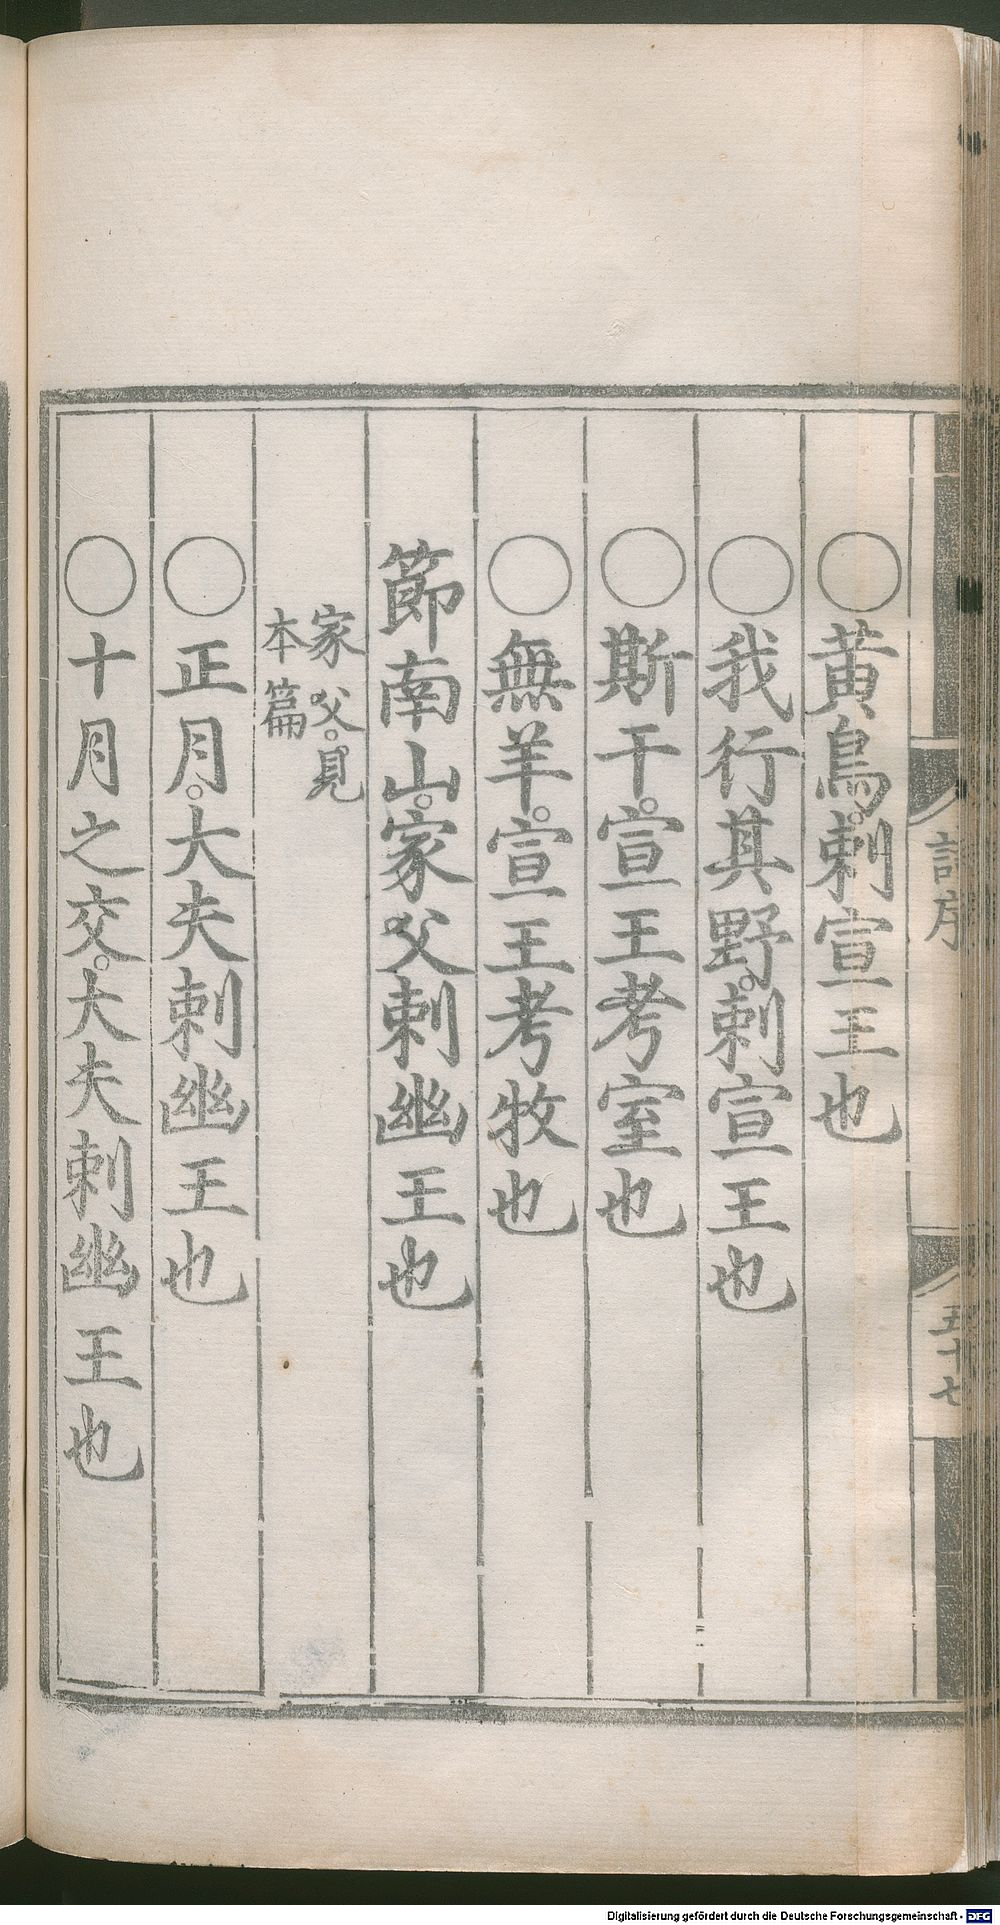 詩序
五十七
○黄鳥。刺宣王也
○我行其野。刺宣王也
○斯干。宣王考室也
○無羊。宣王考牧也
節南山。家父刺幽王也
家父。見
本篇
○正月。大夫刺幽王也
○十月之交。大夫刺幽王也
Digitalisierung gefördert durch die Deutsche Forschungsgemeinschaft - DFG